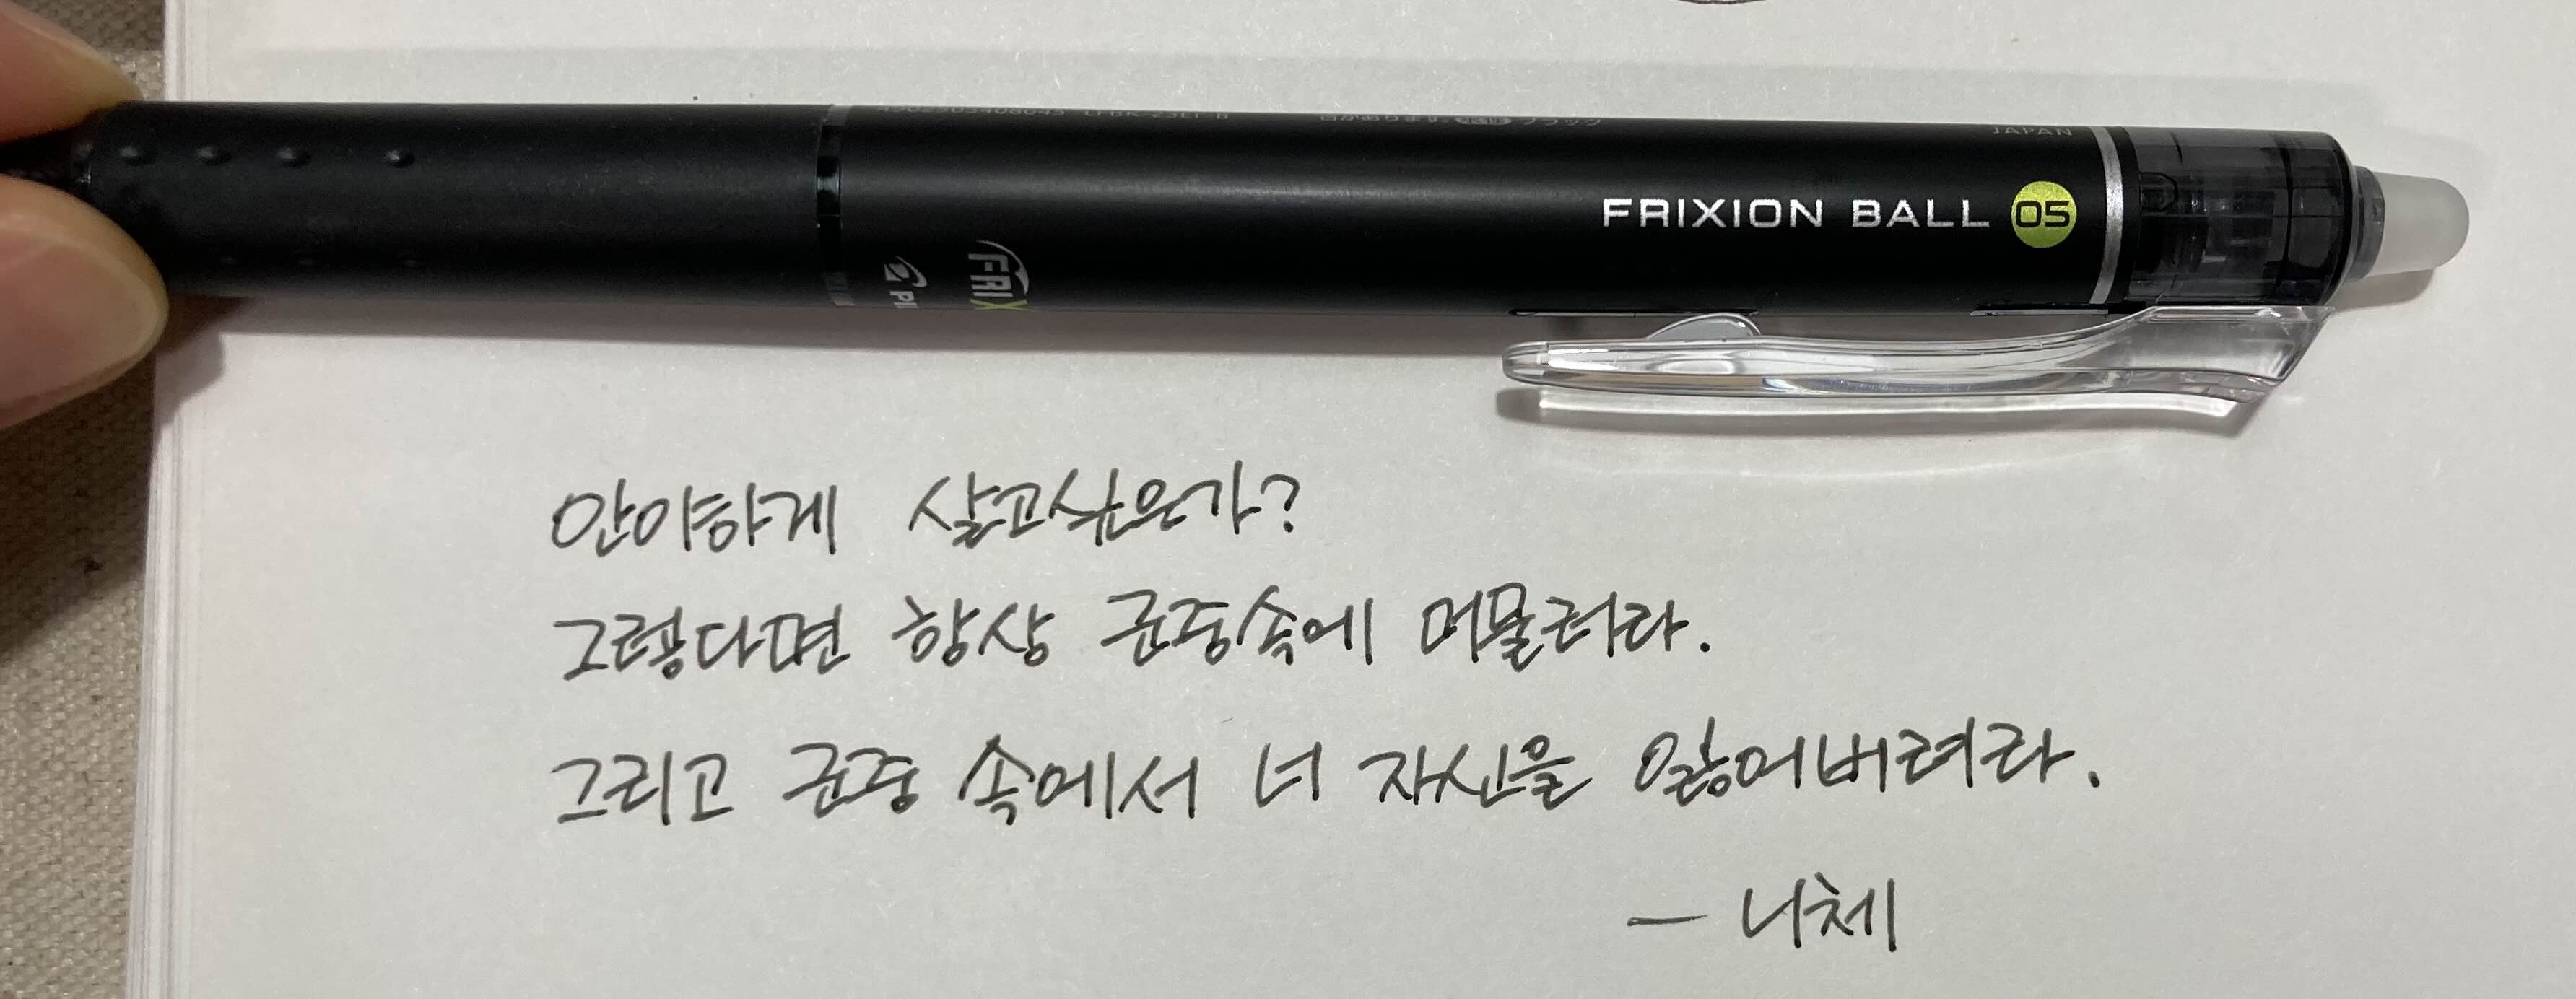 JAPAN
FRIXION BALL 05
FRIX
안이하게 살고싶은가?
그렇다면 항상 군중속에 머물러라.
그리고 군중 속에서 너 자신을 잃어버려라.
— 니체